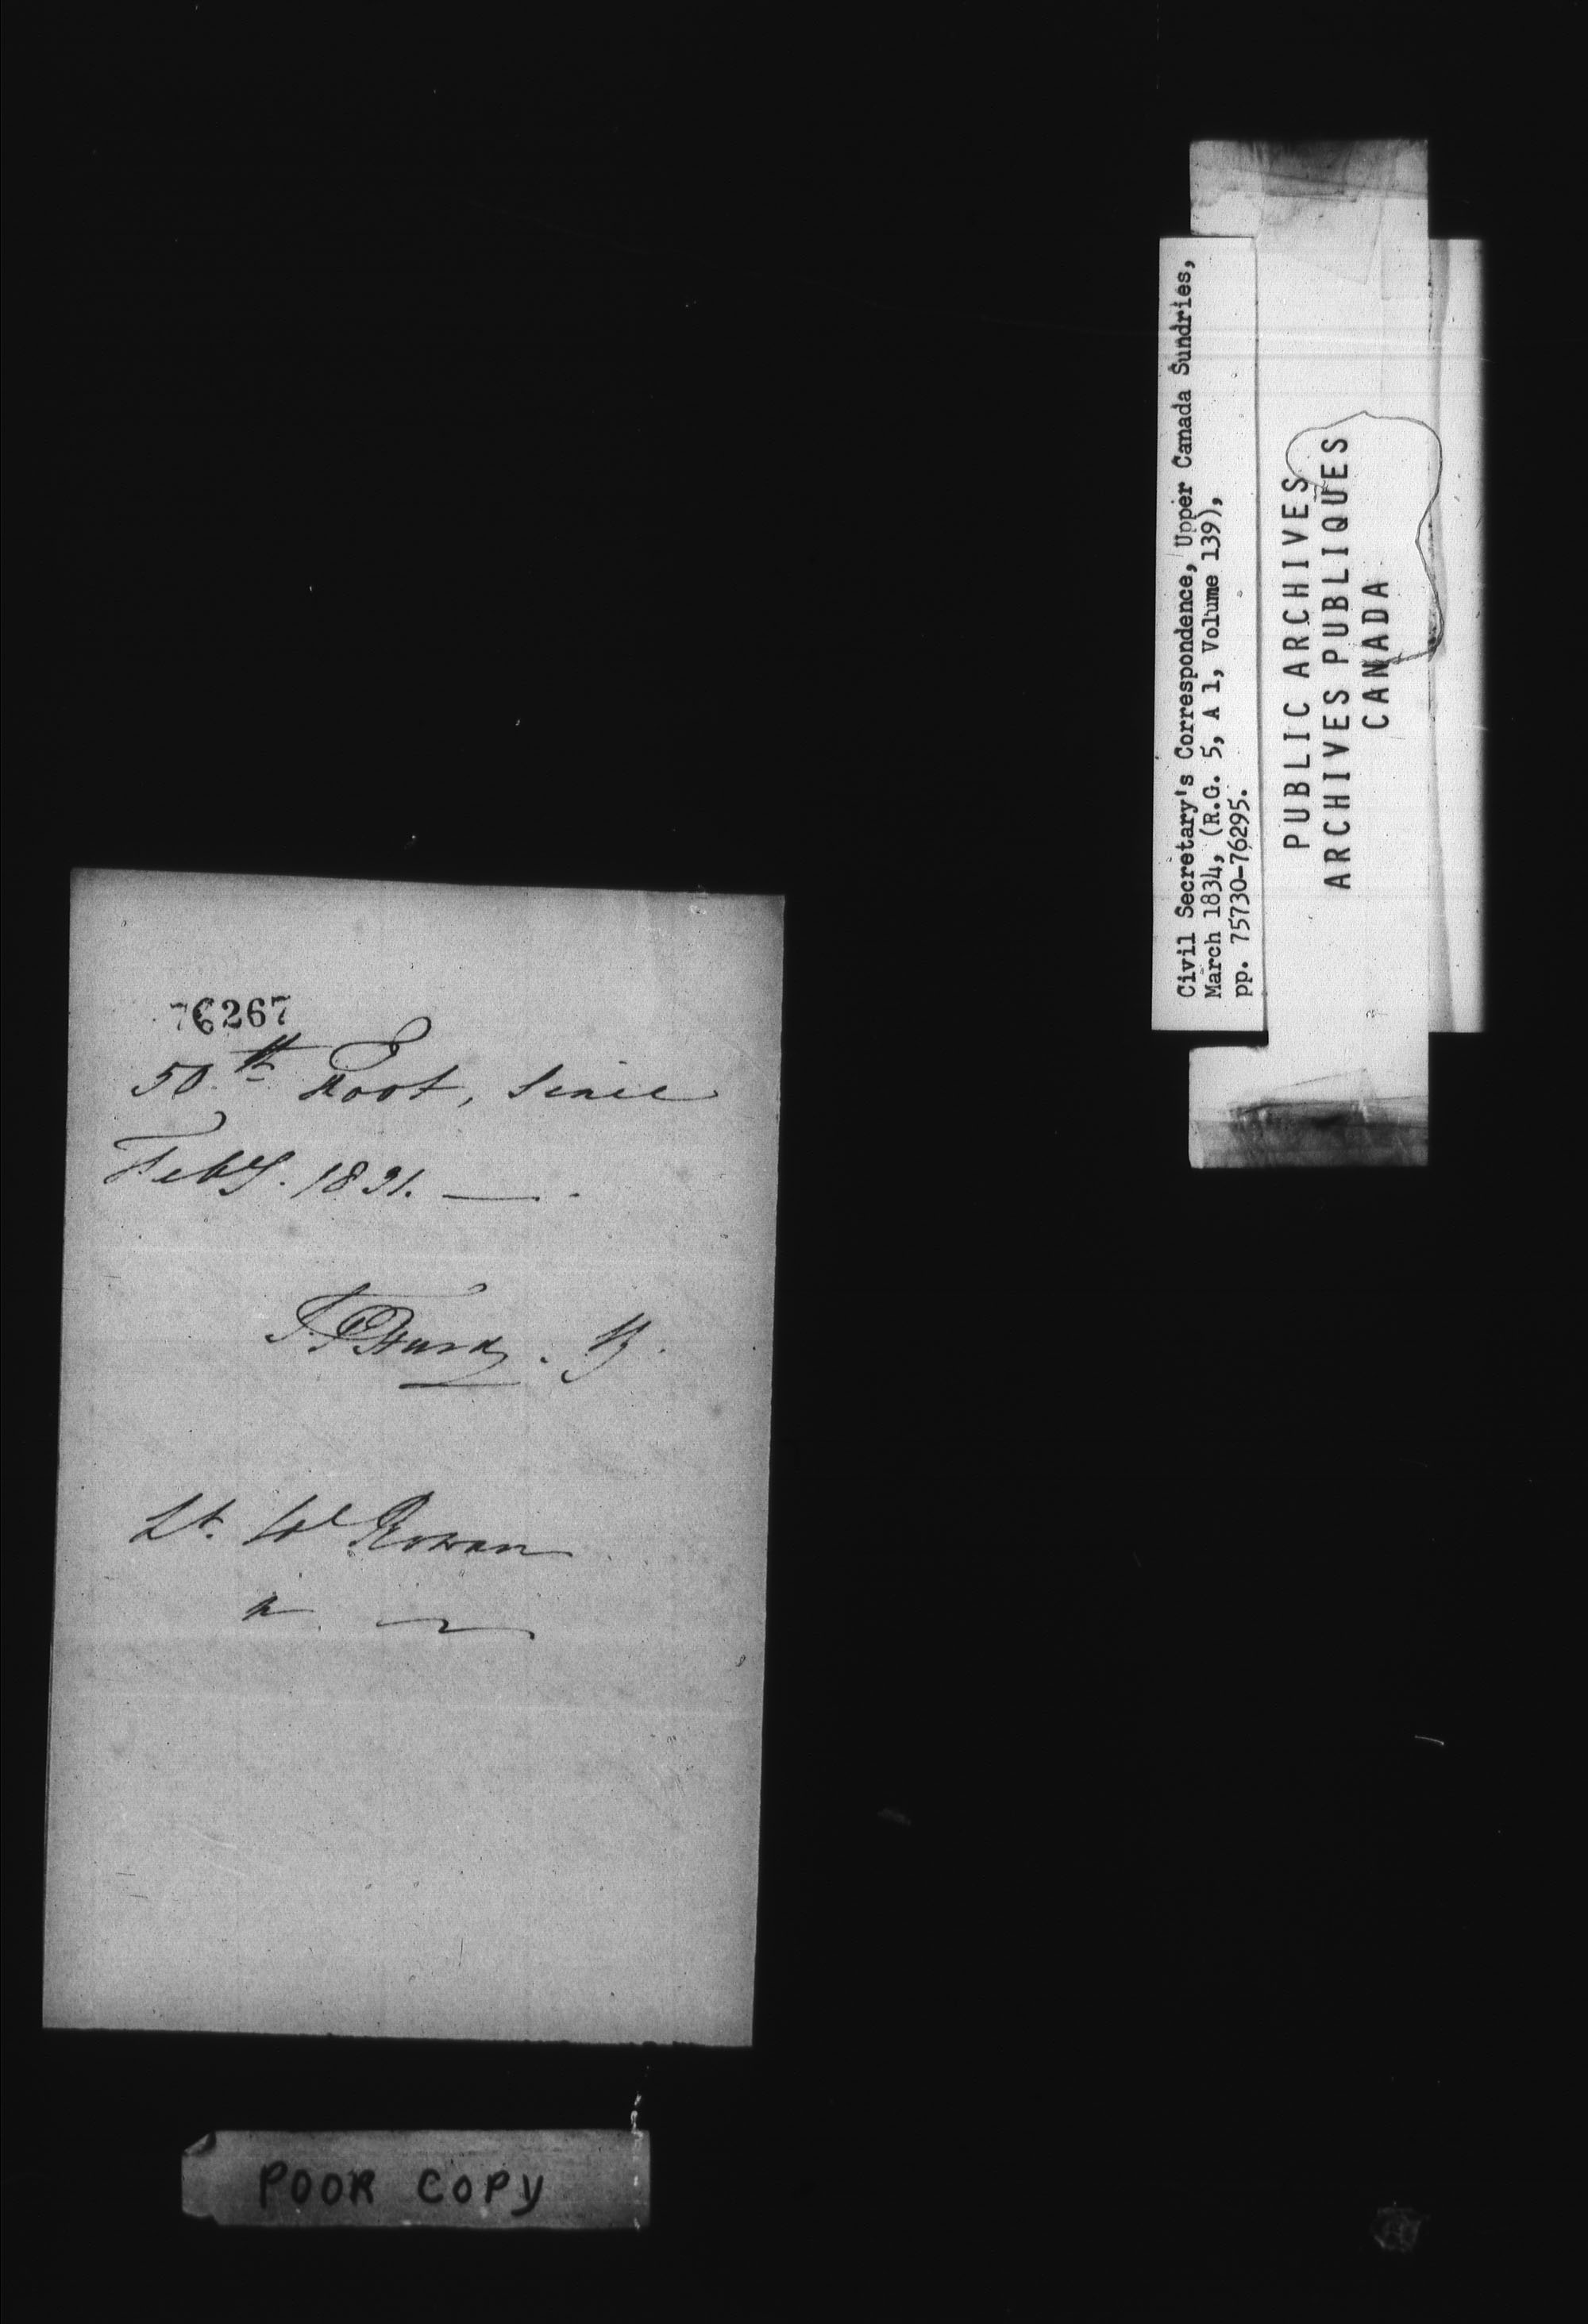 76267
50th Foot, since
Feby. 1831. —
Lt. Col Rowan
POOR COPY
Civil Secretary's Correspondence, Upper Canada Sundries,
March 1834, (R.G. 5, A 1, Volume 139),
pp. 75730-76295.
PUBLIC ARCHIVES
ARCHIVES PUBLIQUES
CANADA